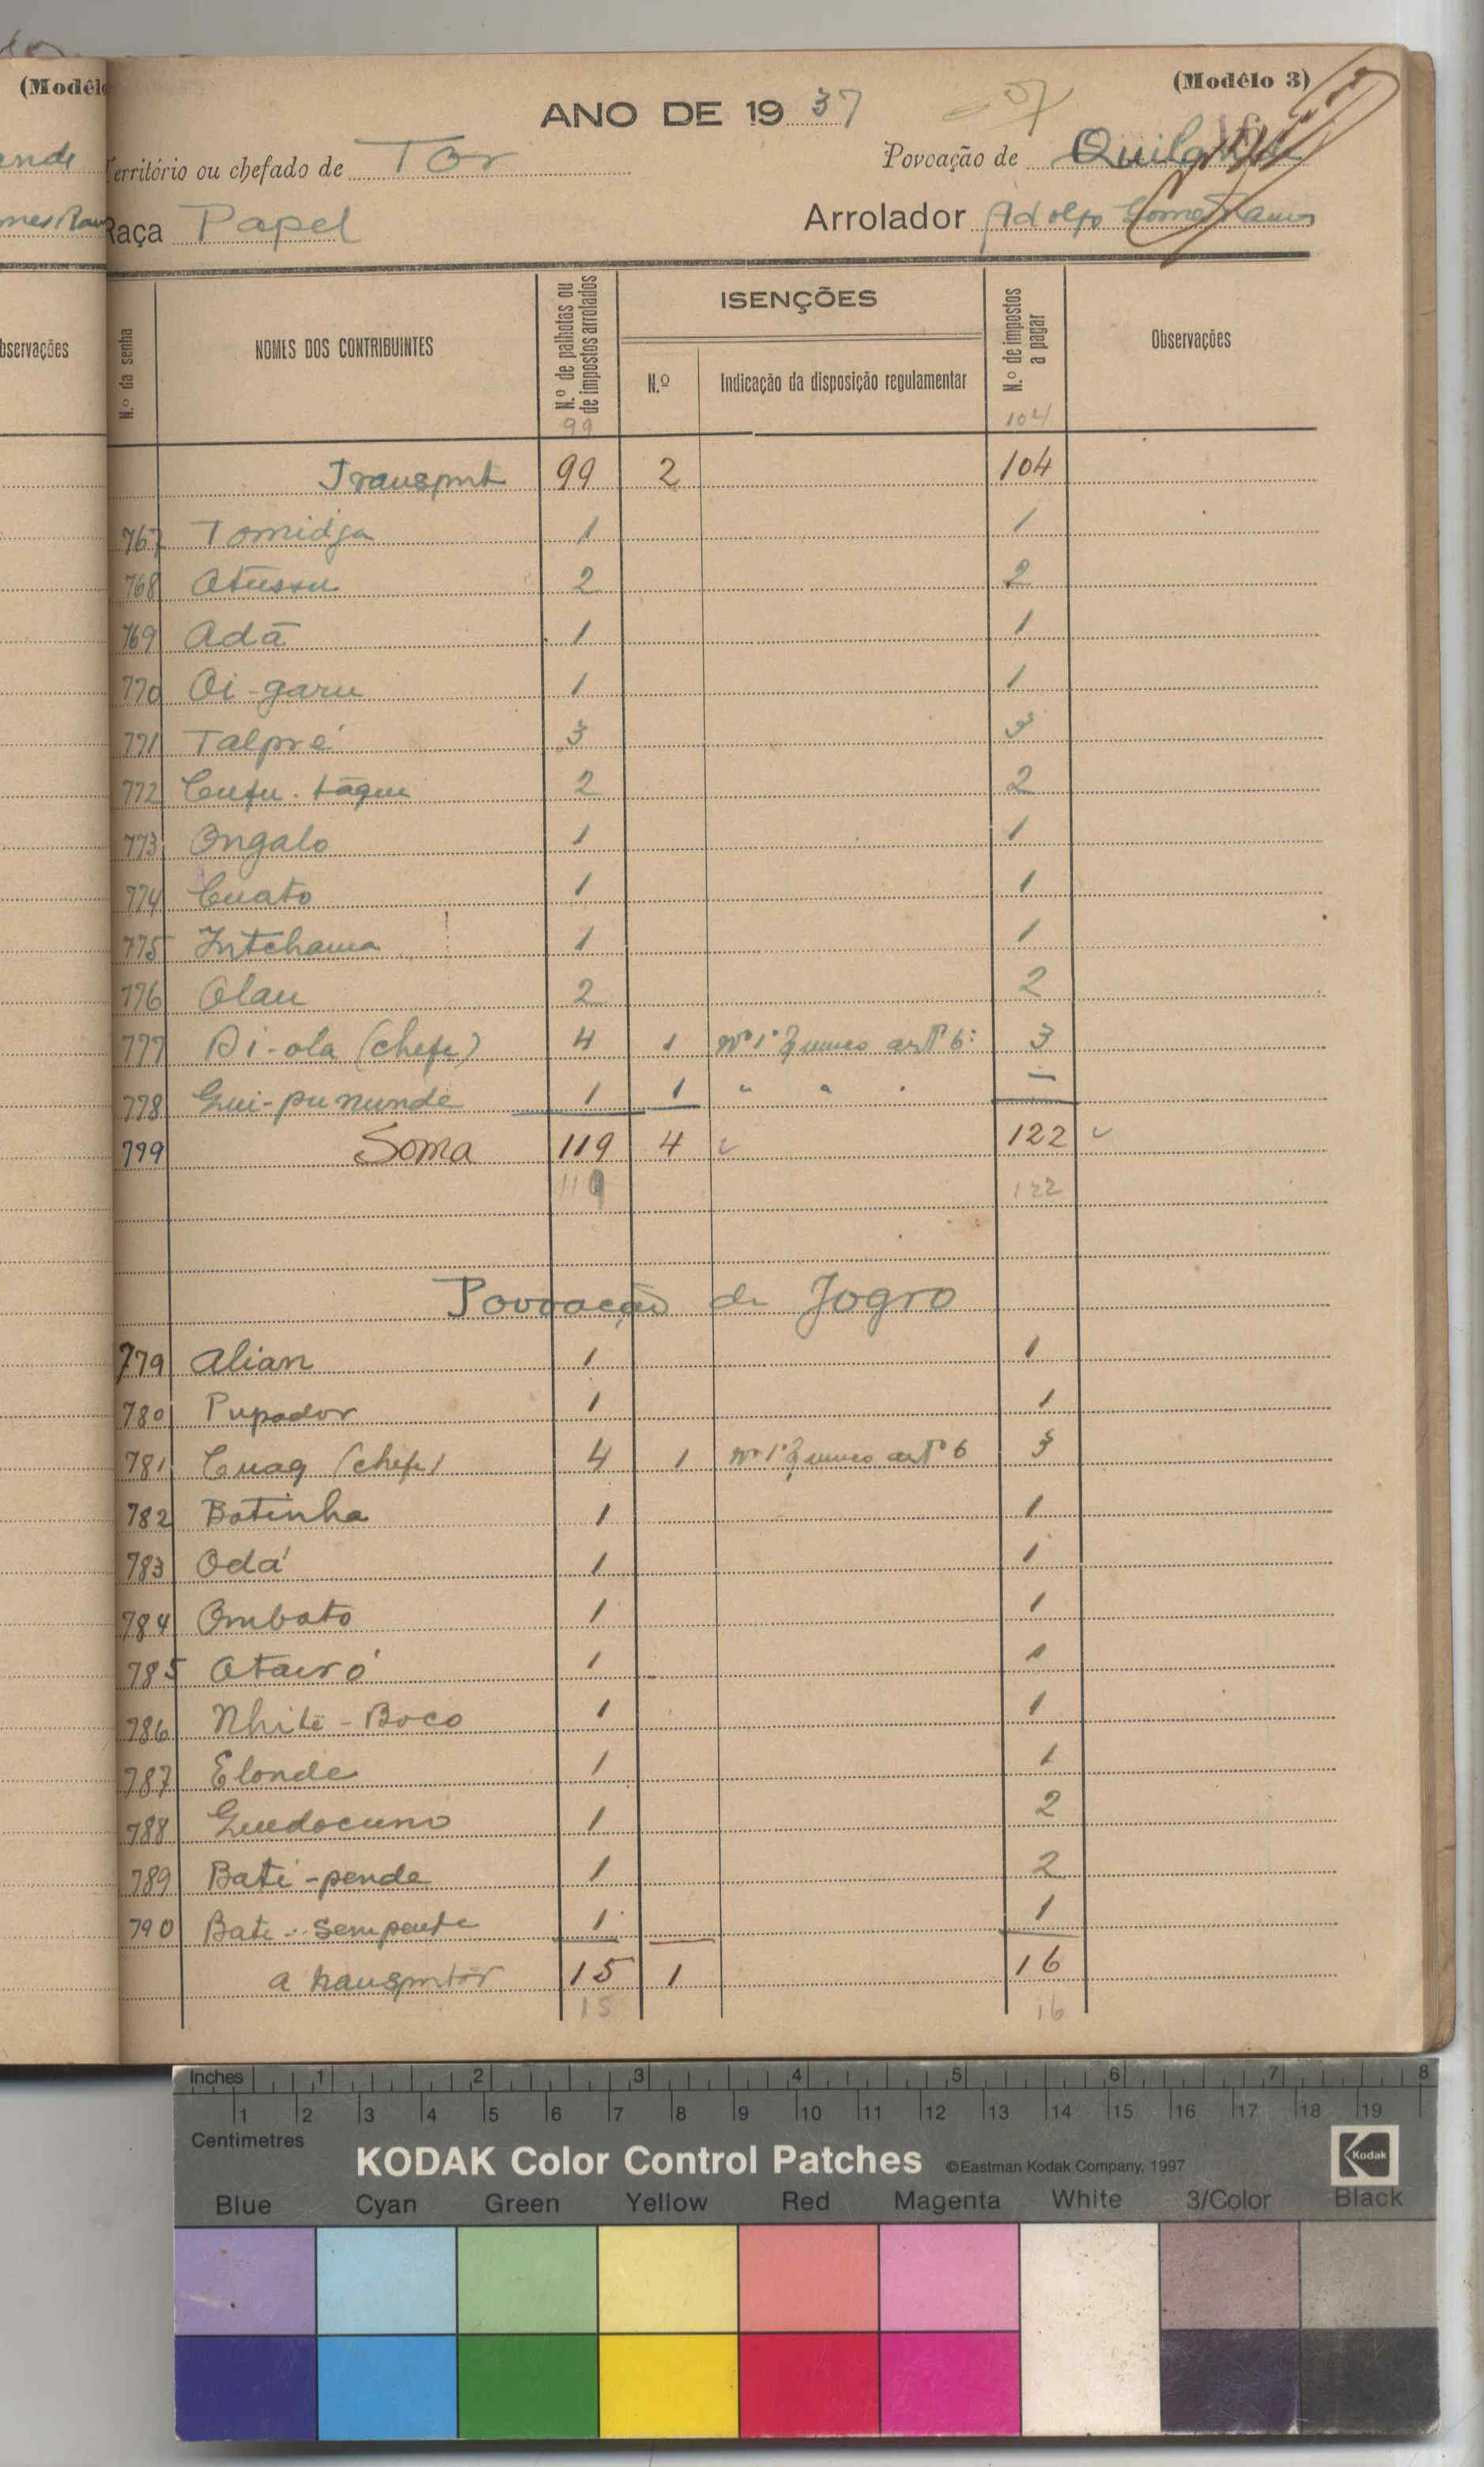 (Modêlo 3)
ANO DE 19 37
Território ou chefado de Tôr
Povoação de
Raça Papel
Arrolador Adolfo Gomes Ramos
N.º da senha
NOMES DOS CONTRIBUINTES
N.º de palhotas ou de impostos arrolados
ISENÇÕES
N.º
Indicação da disposição regulamentar
N.º de impostos a pagar
Observações
99 104
Transporte 99 2 104
767 Tomidja 1 1
768 Atússu 2 2
769 Adã 1 1
770 Oi-garu 1 1
771 Talpré 3 3
772 Cufu-tãque 2 2
773 Ongalo 1 1
774 Cuato 1 1
775 Intchama 1 1
776 Olau 2 2
777 Di-ola (chefe) 4 1 nº 1º § unico artº 6º 3
778 Gui-pununde 1 1 " " " —
799 Soma 119 4 122
119 122
Povoação de Jogro
779 Alian 1 1
780 Pupador 1 1
781 Cuaq (chefe) 4 1 nº 1º § unico artº 6 3
782 Batinha 1 1
783 Odá 1 1
784 Ombato 1 1
785 Otairó 1 1
786 Nhite-Boco 1 1
787 Elonde 1 1
788 Guedocumo 1 2
789 Bati-pende 1 2
790 Bate-Sempente 1 1
a transportar 15 1 16
15 16
Inches 1 2 3 4 5 6 7 8
1 2 3 4 5 6 7 8 9 10 11 12 13 14 15 16 17 18 19
Centimetres
KODAK Color Control Patches ©Eastman Kodak Company, 1997 Kodak
Blue Cyan Green Yellow Red Magenta White 3/Color Black